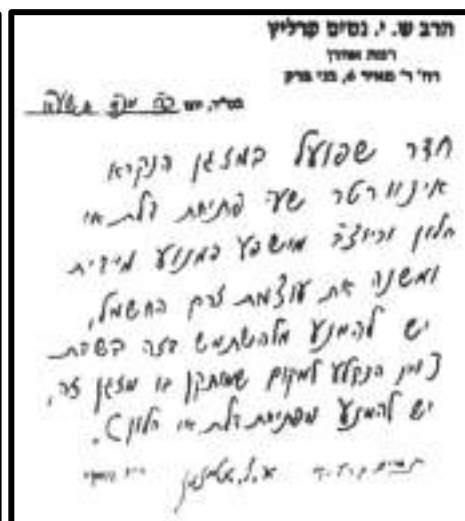 הרב ש. י. נסים קרליץ
רמת אהרן
רח' ר' מאיר 6, בני ברק
בס"ד, יום
חדר שפועל במזגן הנקרא
אינוורטר שע"י פתיחת דלת או
חלון וכיוצ"ב מושפע המנוע מידית
ומשנה את עוצמת זרם החשמל,
יש להמנע מלהשתמש בזה בשבת.
(ומי הנקלע למקום שמותקן בו מזגן זה,
יש להמנע מפתיחת דלת או חלון).